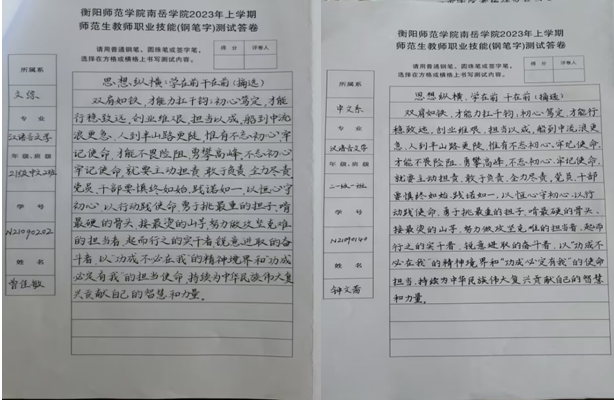 衡阳师范学院南岳学院2023年上学期
师范生教师职业技能(钢笔字)测试答卷
请用普通钢笔、圆珠笔或签字笔,
选择在方格或横格上书写测试内容。
得 分
评卷人
所属系
文综
专 业
汉语言文学
年级、班级
21级中文2班
学 号
N21090202
姓 名
曾佳敏
思想纵横:学在前干在前(摘选)
双肩如铁,才能力扛千钧;初心笃定,才能
行稳致远。创业维艰,担当以成。船到中流
浪更急,人到半山路更陡,惟有不忘初心、牢
记使命,才能不畏险阻,勇攀高峰。不忘初心、
牢记使命,就要主动担责、敢于负责、全力尽责。
党员、干部要慎终如始、践诺如一,以恒心守
初心、以行动践使命,勇于挑最重的担子、啃
最硬的骨头、接最烫的山芋,努力做攻坚克难
的担当者、起而行之的实干者、锐意进取的奋
斗者,以“功成不必在我”的精神境界和“功成
必定有我”的担当使命,持续为中华民族伟大复
兴贡献自己的智慧和力量。
衡阳师范学院南岳学院2023年上学期
师范生教师职业技能(钢笔字)测试答卷
请用普通钢笔、圆珠笔或签字笔,
选择在方格或横格上书写测试内容。
得 分
评卷人
所属系
中文系
专 业
汉语言文学
年级、班级
学 号
N21090140
姓 名
思想纵横:学在前 干在前(摘选)
双肩如铁,才能力扛千钧;初心笃定,才能行
稳致远。创业维艰,担当以成。船到中流浪更
急,人到半山路更陡,惟有不忘初心、牢记使命,
才能不畏险阻、勇攀高峰。不忘初心、牢记使命,
就要主动担责、敢于负责、全力尽责。党员、干部
要慎终如始、践诺如一,以恒心守初心、以行
动践使命,勇于挑最重的担子、啃最硬的骨头、
接最烫的山芋,努力做攻坚克难的担当者、起而
行之的实干者、锐意进取的奋斗者,以“功成不
必在我”的精神境界和“功成必定有我”的使命
担当,持续为中华民族伟大复兴贡献自己的智慧
和力量。